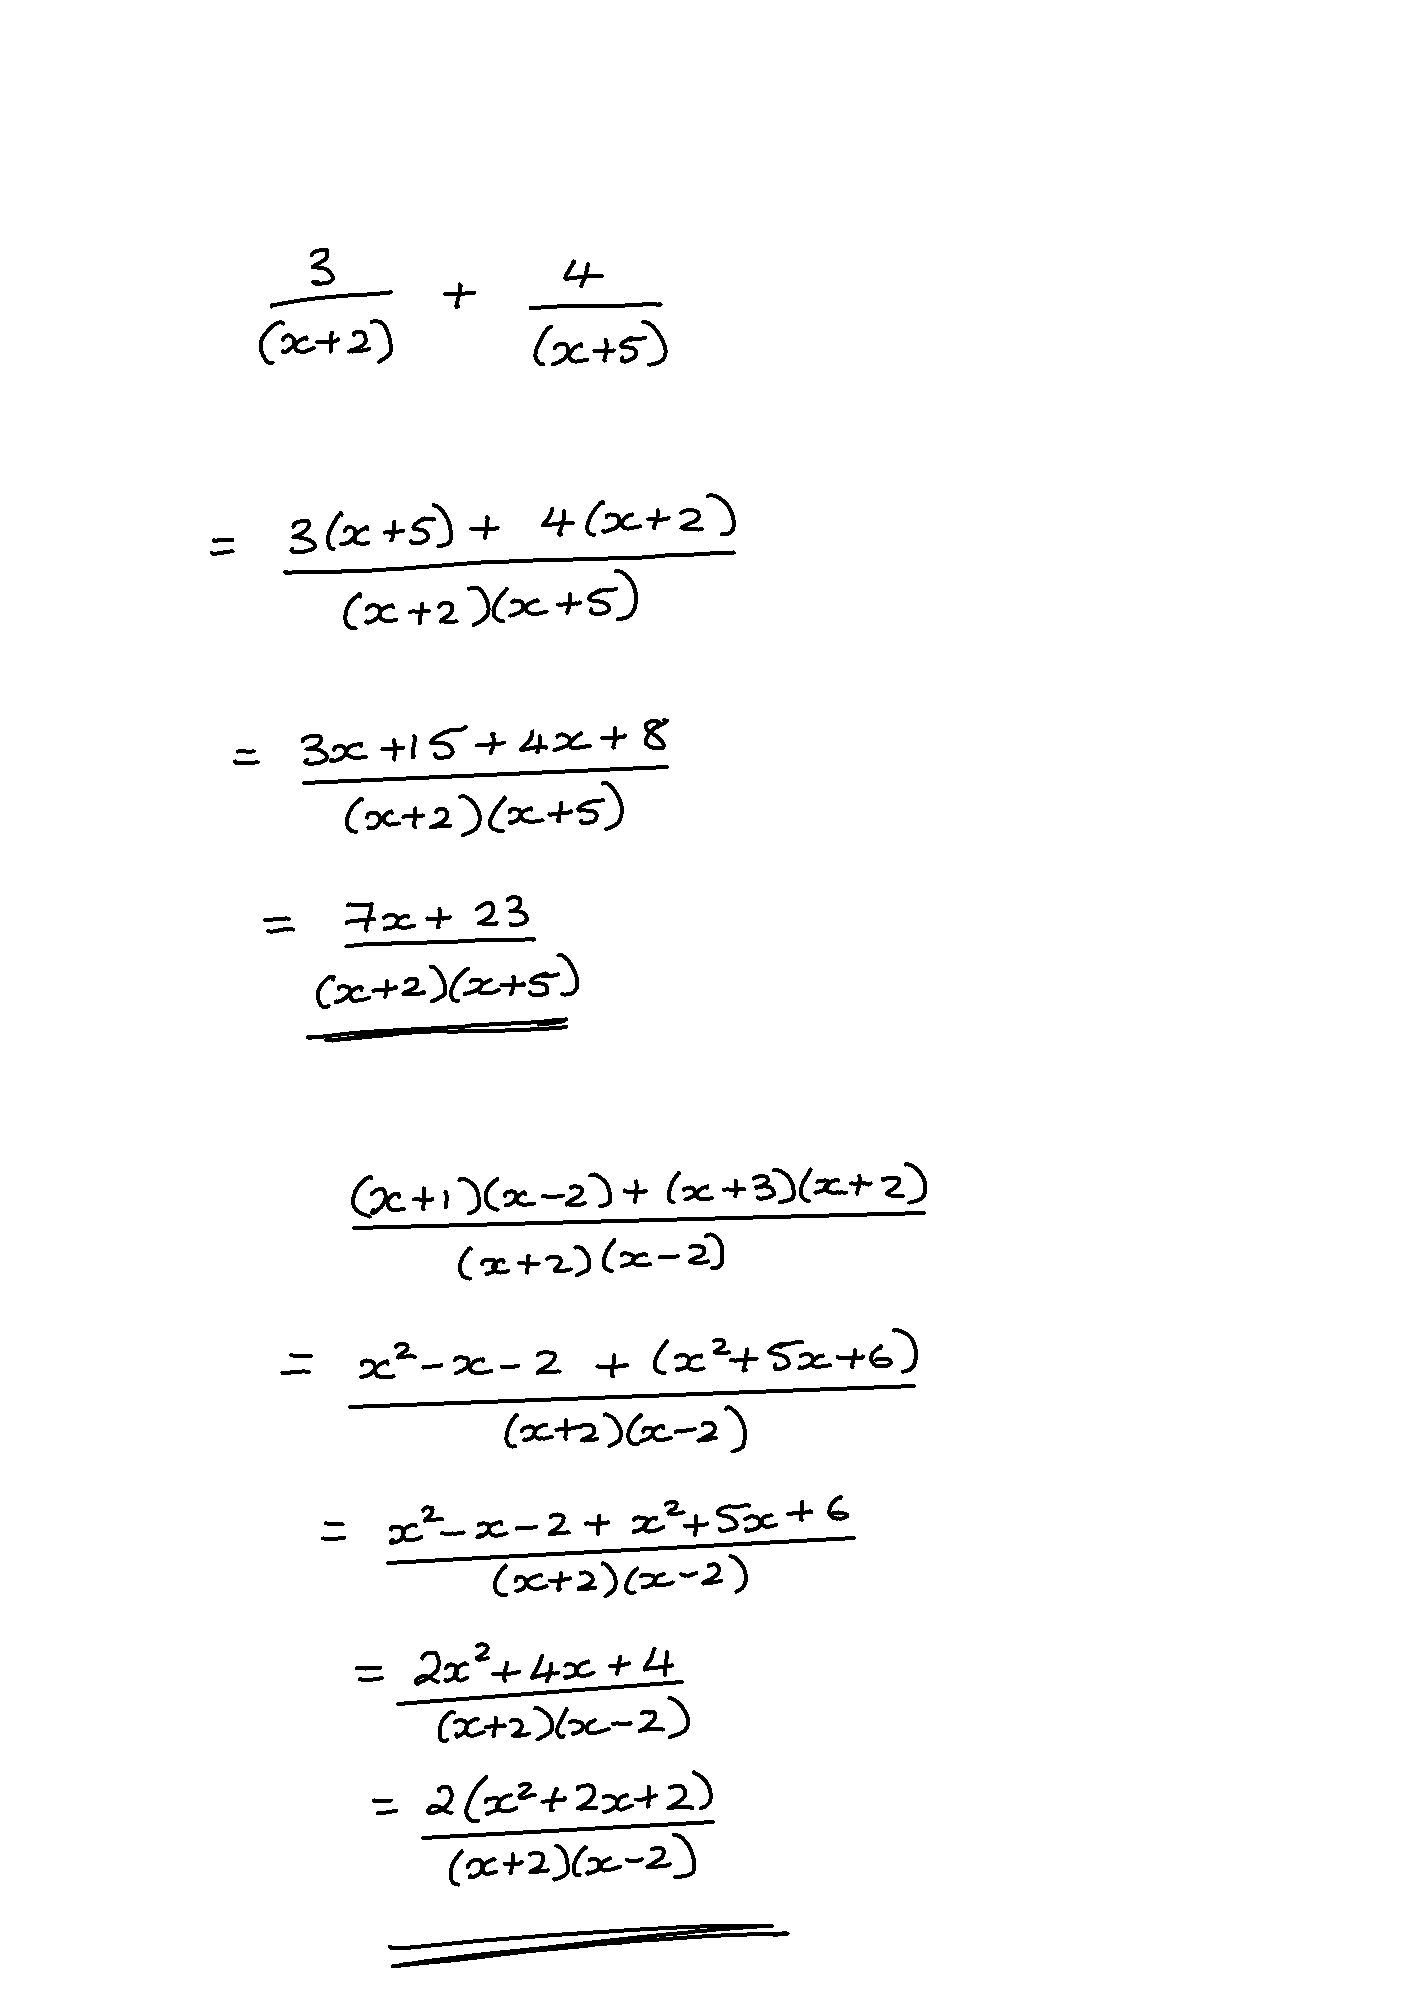 3/(x+2) + 4/(x+5)
= (3(x+5) + 4(x+2))/((x+2)(x+5))
= (3x+15+4x+8)/((x+2)(x+5))
= (7x+23)/((x+2)(x+5))
((x+1)(x-2)+(x+3)(x+2))/((x+2)(x-2))
= (x²-x-2 + (x²+5x+6))/((x+2)(x-2))
= (x²-x-2+x²+5x+6)/((x+2)(x-2))
= (2x²+4x+4)/((x+2)(x-2))
= (2(x²+2x+2))/((x+2)(x-2))